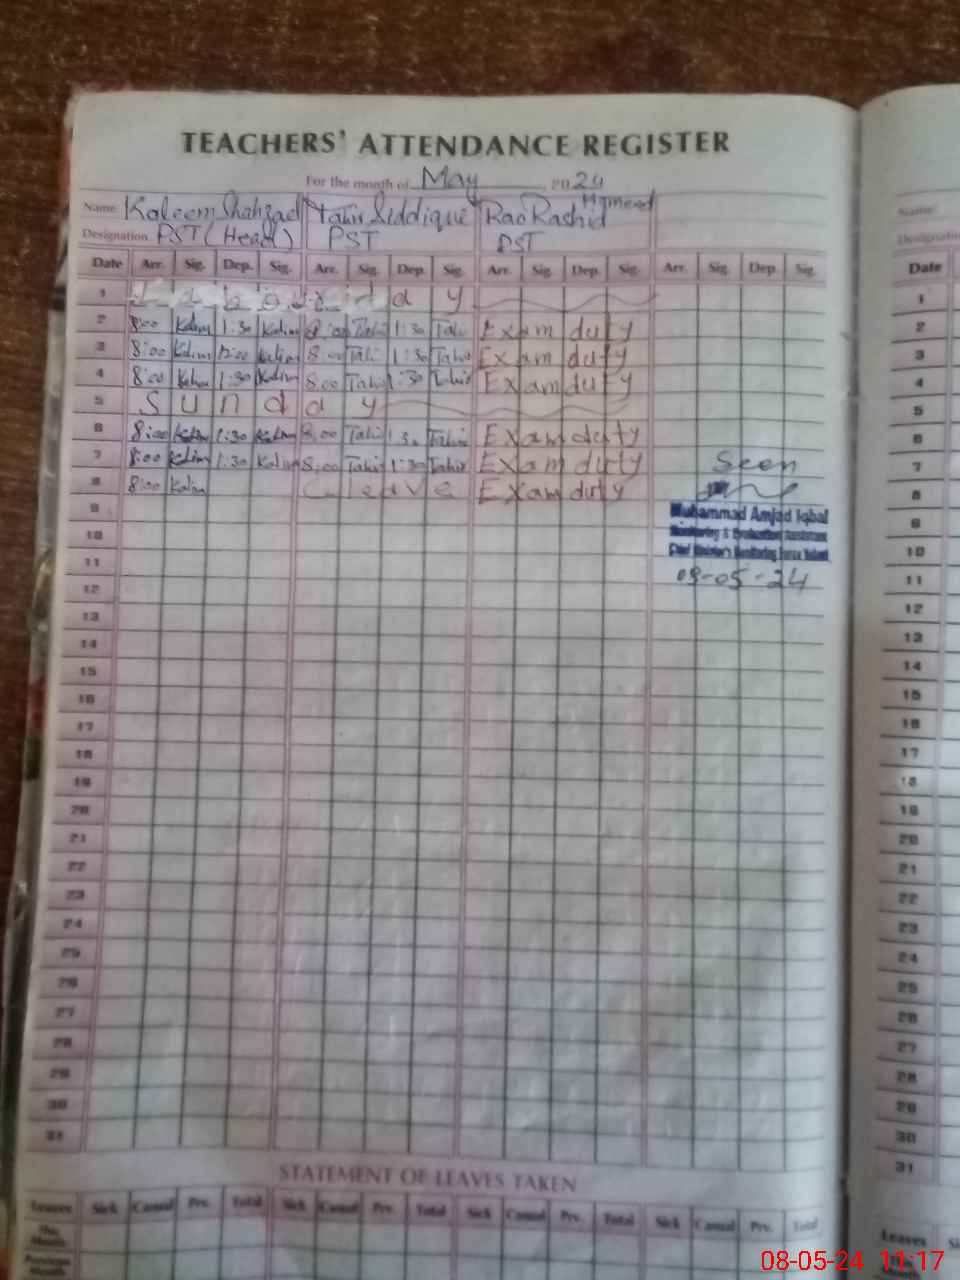 TEACHERS' ATTENDANCE REGISTER
For the month of May 2024
Name Kaleem Shahzad Tahir Siddique Rao Rashid Hameed Name
Designation PST (Head) PST PST Designation
Date Arr. Sig. Dep. Sig. Arr. Sig. Dep. Sig. Arr. Sig. Dep. Sig. Arr. Sig. Dep. Sig. Date
1 d a y 1
2 8:00 Kalim 1:30 Kalim 8:00 Tahir 1:30 Tahir Exam duty 2
3 8:00 Kalim 12:00 Kalim 8:00 Tahir 1:30 Tahir Exam duty 3
4 8:00 Kalim 1:30 Kalim 8:00 Tahir 1:30 Tahir Exam duty 4
5 S u n d a y 5
6 8:00 Kalim 1:30 Kalim 8:00 Tahir 1:30 Tahir Exam duty 6
7 8:00 Kalim 1:30 Kalim 8:00 Tahir 1:30 Tahir Exam duty Seen 7
8 8:00 Kalim C leave Exam duty 8
9 Muhammad Amjad Iqbal 9
10 Monitoring & Evaluation Assistant 10
11 Chief Minister's Monitoring Force 11
12 08-05-24 12
13 13
14 14
15 15
16 16
17 17
18 18
19 19
20 20
21 21
22 22
23 23
24 24
25 25
26 26
27 27
28 28
29 29
30 30
31 31
STATEMENT OF LEAVES TAKEN
Leaves Sick Casual Prv. Total Sick Casual Prv. Total Sick Casual Prv. Total Sick Casual Prv. Total Leaves
This Month
Previous Month
08-05-24 11:17